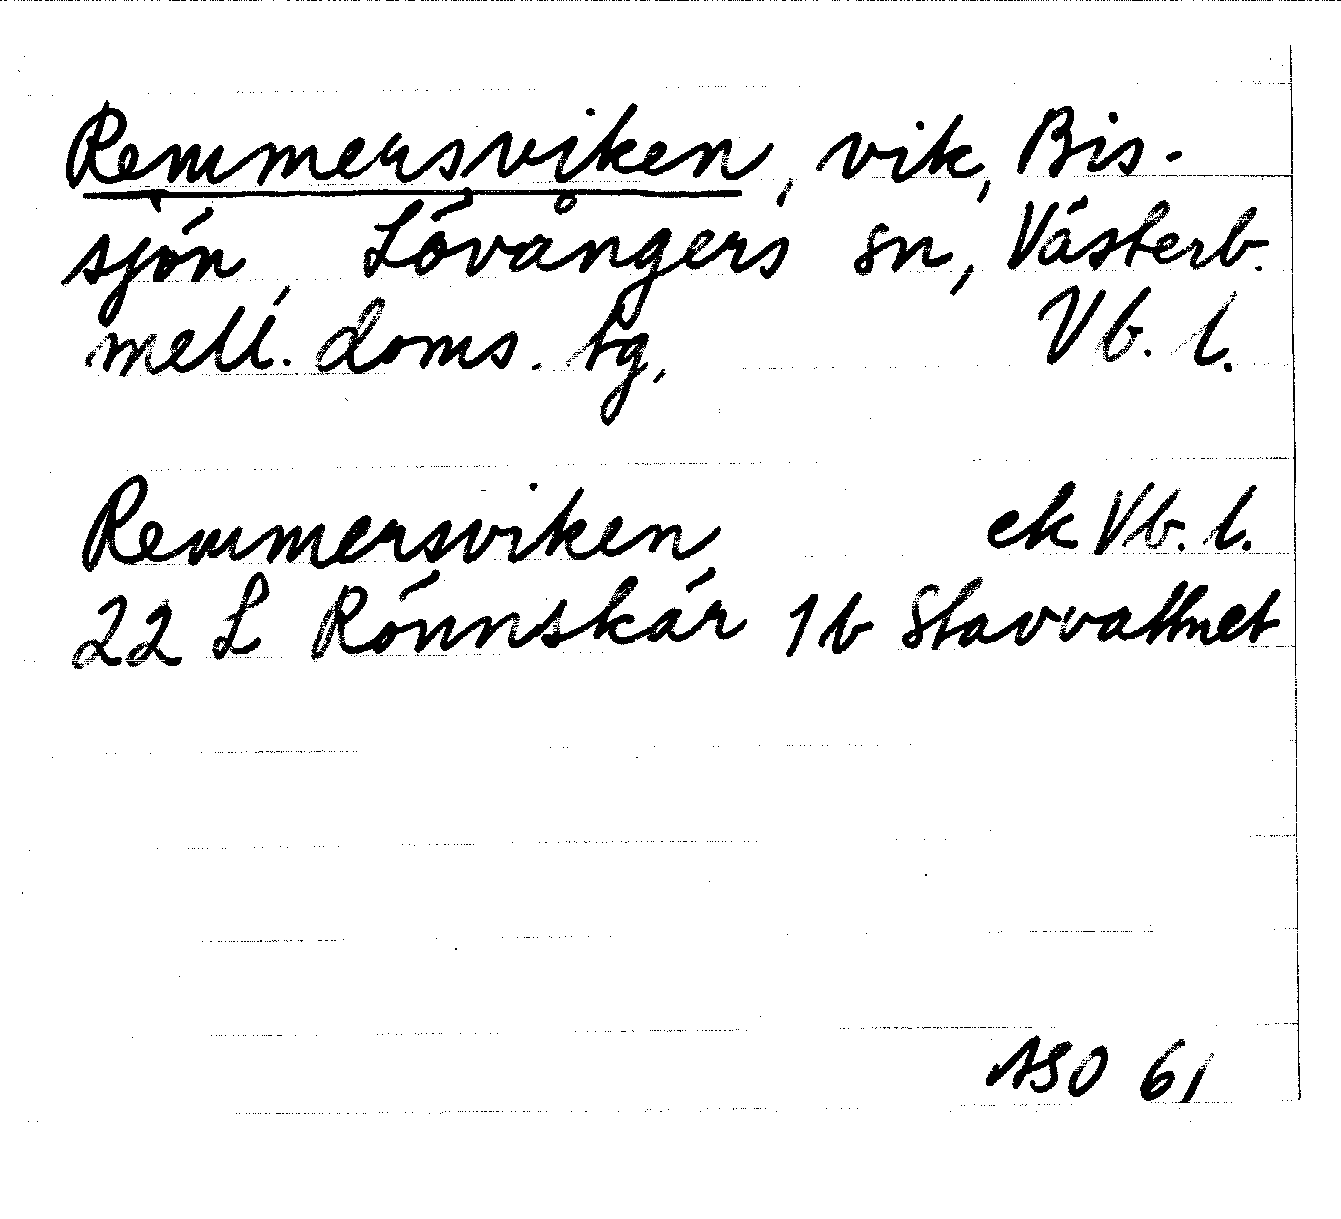 Remmersviken, vik, Bis-
sjön, Lövångers sn, Västerb.
mell. doms. tg,  Vb. l.
Remmersviken  ek Vb. l.
22 L Rönnskär 1b Stavvattnet
ASO 61